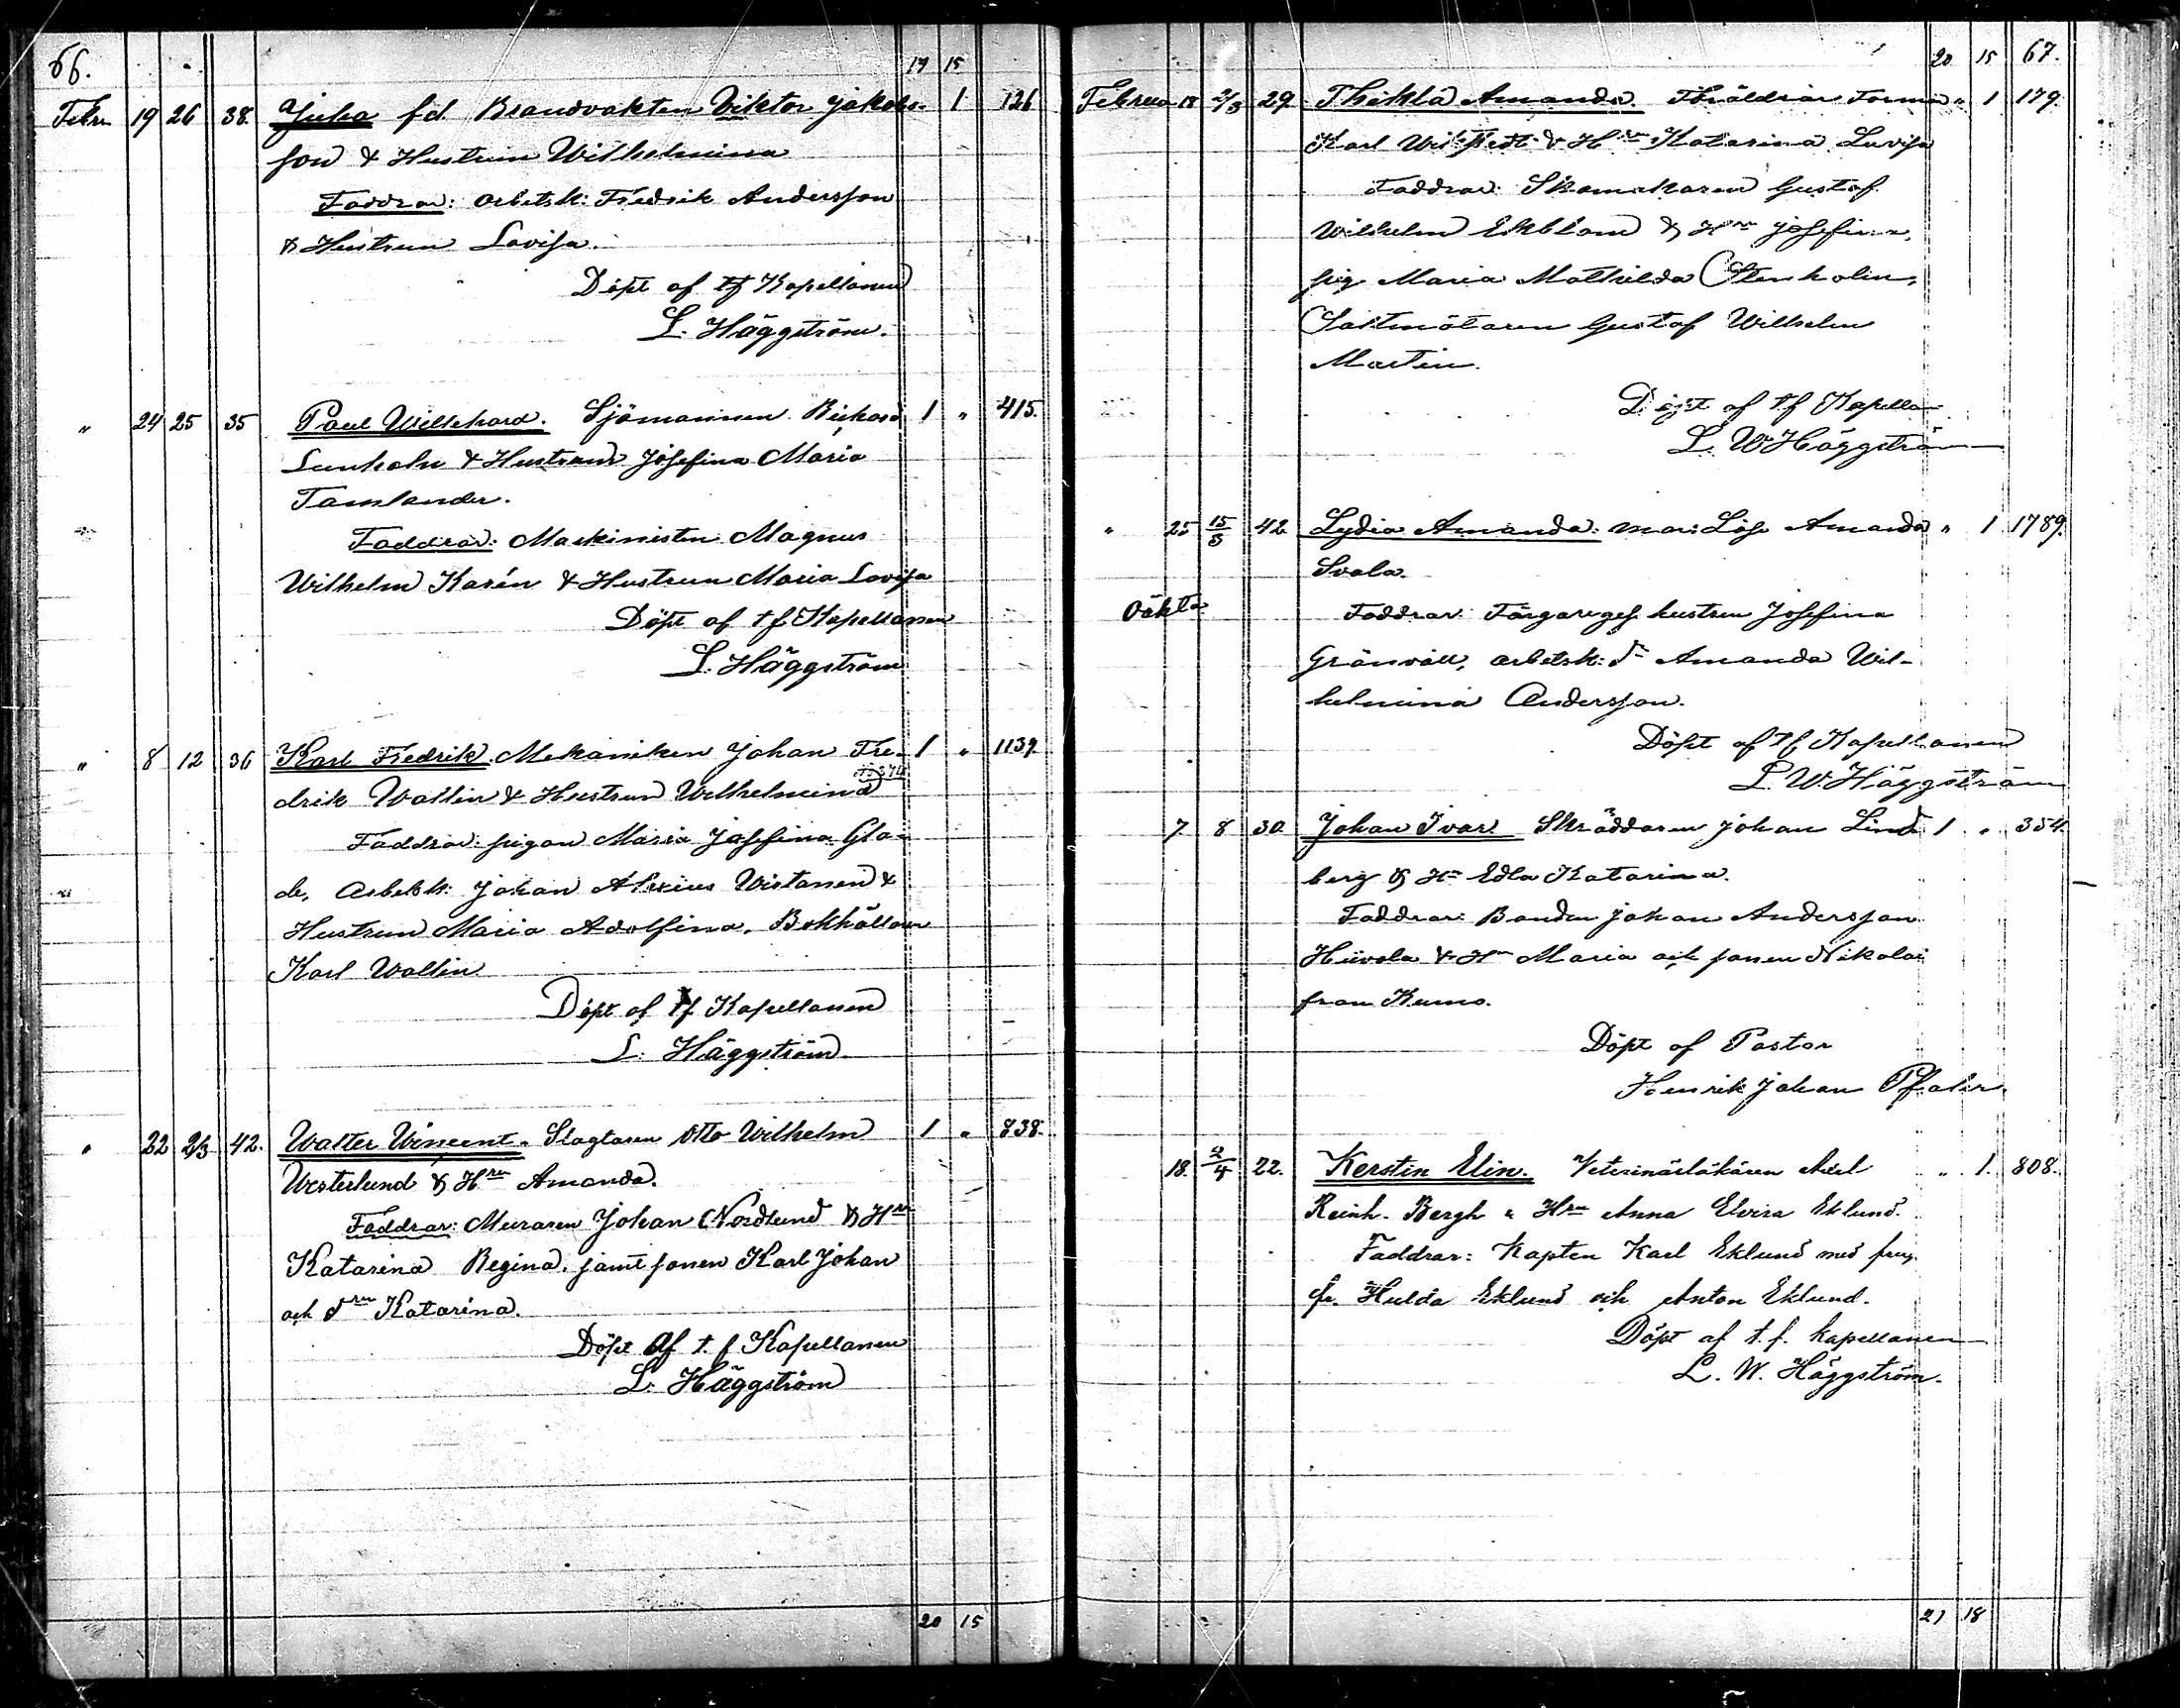 66.
17 15
Febru 19 26 38. Juho fd. Brandvakten Viktor Jakobs- 1 126
son & Hustrun Wilhelmina
Faddrar: arbetsk: Fredrik Andersson
& Hustrun Lovisa.
Döpt af tf Kapellanen
L. Häggström.
" 24 25 35 Paul Willehard. Sjömannen Rickard 1 " 415.
Lunholm & Hustrun Josefina Maria
Tamlander.
Faddrar: Maskinisten Magnus
Wilhelm Karén & Hustrun Maria Lovisa
Döpt af tf Kapellanen
L. Häggström
" 8 12 36 Karl Fredrik. Mekaniken Johan Fre- 1 " 1139
drik Wallin & Hustrun Wilhelmina
Faddrar: pigan Maria Josefina Gla-
de, Arbetsk: Johan Alexius Wirtanen &
Hustrun Maria Adolfina, Bokhållaren
Karl Wallin
Döpt af tf Kapellanen
L. Häggström
" 22 2/3 42. Walter Wincent. Slagtaren Otto Wilhelm 1 " 838.
Westerlund & Hru Amanda.
Faddrar: Muraren Johan Nordlund & Hru
Katarina Regina, jämt sonen Karl Johan
och dru Katarina.
Döpt af t. f Kapellanen
L. Häggström
20 15
20 15 67.
Februa 18 2/3 29. Thekla Amanda. Föräldrar Forman " 1 179.
Karl Wikstedt & Hru Katarina Lovisa
Faddrar: Skomakaren Gustaf
Wilhelm Ekblom & Hru Josefina,
pig Maria Mathilda Stenholm,
Saltmätaren Gustaf Wilhelm
Martin.
Döpt af tf Kapella
L. W Häggström
" 25 15/3 42. Lydia Amanda: mor: Lös. Amanda " 1 1789.
Svala.
Oäkta Faddrar: Färgareges. hustrun Josefina
Grönvall, arbetsk: dr Amanda Wil-
helmina Andersson.
Döpt af tf Kapellanen
L. W. Häggström
7 8 30. Johan Ivar. Skräddaren Johan Lind 1 " 354.
berg & Hru Edla Katarina.
Faddrar: Bonden Johan Andersson
Hiivola & Hru Maria och sonen Nikolai
från Kumo.
Döpt af Pastor
Henrik Johan Pfaler.
18. 2/4 22. Kerstin Elin. Veterinärläkaren Axel " 1. 808.
Reinh. Bergh & Hru Anna Elvira Eklund.
Faddrar: Kapten Karl Eklund med fru,
fr. Hulda Eklund och Anton Eklund.
Döpt af t.f. kapellanen
L. W. Häggström.
21 18